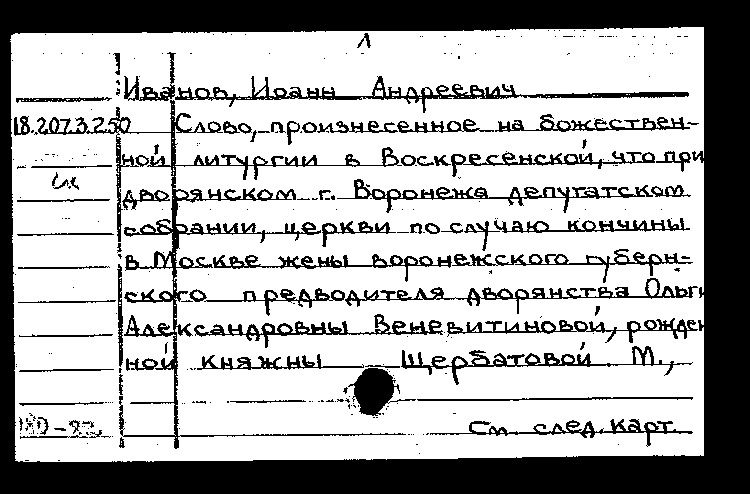 1
Иванов, Иоанн Андреевич
18.207.3.250 Слово, произнесенное на божествен-
ной литургии в Воскресенской, что при
дворянском г. Воронежа депутатском
собрании, церкви по случаю кончины
в Москве жены воронежского губерн-
ского предводителя дворянства Ольги
Александровны Веневитиновой, рожден
ной княжны Щербатовой М.,
См. след. карт.